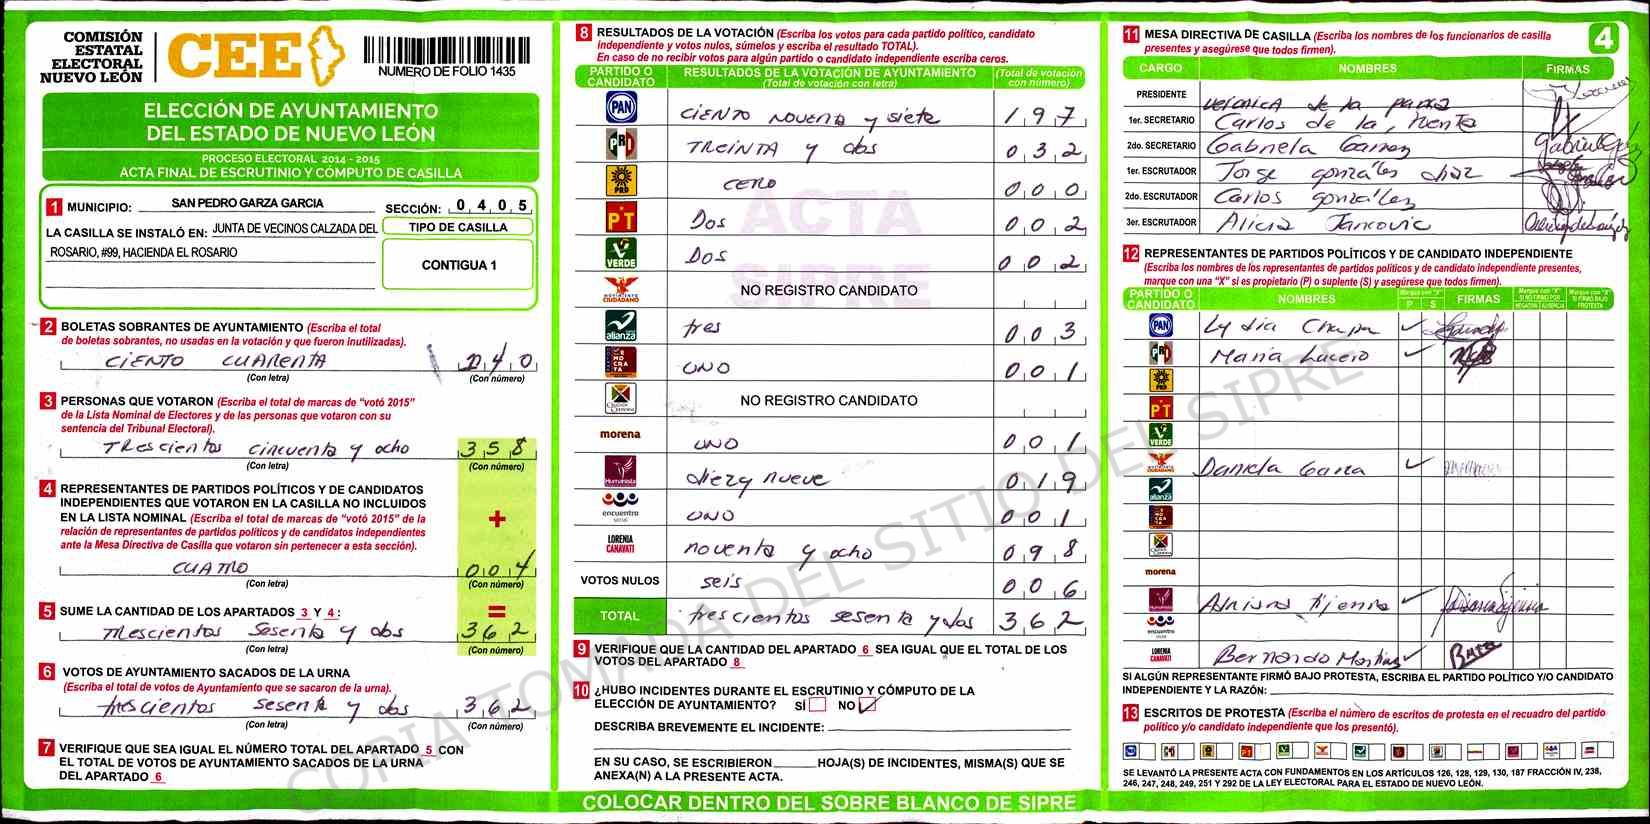 COMISIÓN
ESTATAL
ELECTORAL
NUEVO LEÓN
CEE
NUMERO DE FOLIO 1435
ELECCIÓN DE AYUNTAMIENTO
DEL ESTADO DE NUEVO LEÓN
PROCESO ELECTORAL 2014 - 2015
ACTA FINAL DE ESCRUTINIO Y CÓMPUTO DE CASILLA
1 MUNICIPIO: SAN PEDRO GARZA GARCIA SECCIÓN: 0 4 0 5
LA CASILLA SE INSTALÓ EN: JUNTA DE VECINOS CALZADA DEL
ROSARIO, #99, HACIENDA EL ROSARIO
TIPO DE CASILLA
CONTIGUA 1
2 BOLETAS SOBRANTES DE AYUNTAMIENTO (Escriba el total
de boletas sobrantes, no usadas en la votación y que fueron inutilizadas).
CIENTO CUARENTA 140
(Con letra) (Con número)
3 PERSONAS QUE VOTARON (Escriba el total de marcas de "votó 2015"
de la Lista Nominal de Electores y de las personas que votaron con su
sentencia del Tribunal Electoral).
TRescientos cincuenta y ocho 358
(Con letra) (Con número)
4 REPRESENTANTES DE PARTIDOS POLÍTICOS Y DE CANDIDATOS
INDEPENDIENTES QUE VOTARON EN LA CASILLA NO INCLUIDOS
EN LA LISTA NOMINAL (Escriba el total de marcas de "votó 2015" de la
relación de representantes de partidos políticos y de candidatos independientes
ante la Mesa Directiva de Casilla que votaron sin pertenecer a esta sección).
+
CUATRO 004
(Con letra) (Con número)
5 SUME LA CANTIDAD DE LOS APARTADOS 3 Y 4: =
TRescientos Sesenta y dos 362
(Con letra) (Con número)
6 VOTOS DE AYUNTAMIENTO SACADOS DE LA URNA
(Escriba el total de votos de Ayuntamiento que se sacaron de la urna).
trescientos sesenta y dos 362
(Con letra) (Con número)
7 VERIFIQUE QUE SEA IGUAL EL NÚMERO TOTAL DEL APARTADO 5 CON
EL TOTAL DE VOTOS DE AYUNTAMIENTO SACADOS DE LA URNA
DEL APARTADO 6
8 RESULTADOS DE LA VOTACIÓN (Escriba los votos para cada partido político, candidato
independiente y votos nulos, súmelos y escriba el resultado TOTAL).
En caso de no recibir votos para algún partido o candidato independiente escriba ceros.
PARTIDO O CANDIDATO RESULTADOS DE LA VOTACIÓN DE AYUNTAMIENTO (Total de votación con letra) (Total de votación con número)
PAN CIENTO NOVENTA y siete 197
PRI TREINTA y dos 032
PRD CERO 000
PT Dos 002
VERDE Dos 002
MOVIMIENTO CIUDADANO NO REGISTRO CANDIDATO
alianza tres 003
DEMOCRATA UNO 001
NO REGISTRO CANDIDATO
morena UNO 001
Humanista diez y nueve 019
encuentro social UNO 001
LORENIA CANAVATI noventa y ocho 098
VOTOS NULOS seis 006
TOTAL trescientos sesenta y dos 362
ACTA
SIPRE
9 VERIFIQUE QUE LA CANTIDAD DEL APARTADO 6 SEA IGUAL QUE EL TOTAL DE LOS
VOTOS DEL APARTADO 8
10 ¿HUBO INCIDENTES DURANTE EL ESCRUTINIO Y CÓMPUTO DE LA
ELECCIÓN DE AYUNTAMIENTO? SÍ NO ✓
DESCRIBA BREVEMENTE EL INCIDENTE:
EN SU CASO, SE ESCRIBIERON HOJA(S) DE INCIDENTES, MISMA(S) QUE SE
ANEXA(N) A LA PRESENTE ACTA.
COLOCAR DENTRO DEL SOBRE BLANCO DE SIPRE
11 MESA DIRECTIVA DE CASILLA (Escriba los nombres de los funcionarios de casilla
presentes y asegúrese que todos firmen).
4
CARGO NOMBRES FIRMAS
PRESIDENTE Veronica de la parra
1er. SECRETARIO Carlos de la
2do. SECRETARIO Gabriela Garza
1er. ESCRUTADOR Jorge gonzáles diaz
2do. ESCRUTADOR Carlos gonzález
3er. ESCRUTADOR Alicia Jancovic
12 REPRESENTANTES DE PARTIDOS POLÍTICOS Y DE CANDIDATO INDEPENDIENTE
(Escriba los nombres de los representantes de partidos políticos y de candidato independiente presentes,
marque con una "X" si es propietario (P) o suplente (S) y asegúrese que todos firmen).
PARTIDO O CANDIDATO NOMBRES Marque con "X" P S FIRMAS Marque con "X" SI NO FIRMÓ POR NEGATIVA AUSENCIA Marque con "X" SI FIRMÓ BAJO PROTESTA
PAN Lydia Chapa ✓
PRI Maria Lucero ✓
PRD
PT
VERDE
CIUDADANO Daniela Garza ✓
alianza
morena
Humanista Adriana Tijerina ✓
encuentro social
LORENIA CANAVATI Bernardo Martinez ✓
SI ALGÚN REPRESENTANTE FIRMÓ BAJO PROTESTA, ESCRIBA EL PARTIDO POLÍTICO Y/O CANDIDATO
INDEPENDIENTE Y LA RAZÓN:
13 ESCRITOS DE PROTESTA (Escriba el número de escritos de protesta en el recuadro del partido
político y/o candidato independiente que los presentó).
SE LEVANTÓ LA PRESENTE ACTA CON FUNDAMENTOS EN LOS ARTÍCULOS 126, 128, 129, 130, 187 FRACCIÓN IV, 238,
246, 247, 248, 249, 251 Y 292 DE LA LEY ELECTORAL PARA EL ESTADO DE NUEVO LEÓN.
COPIA TOMADA DEL SITIO DEL SIPRE